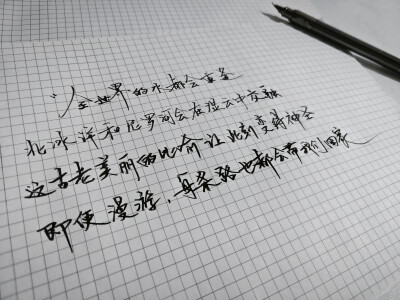 “全世界的水都会重逢
北冰洋和尼罗河会在湿云中交融
这古老美丽的比喻让此刻变得神圣
即便漫游,每条路也都会带我们回家